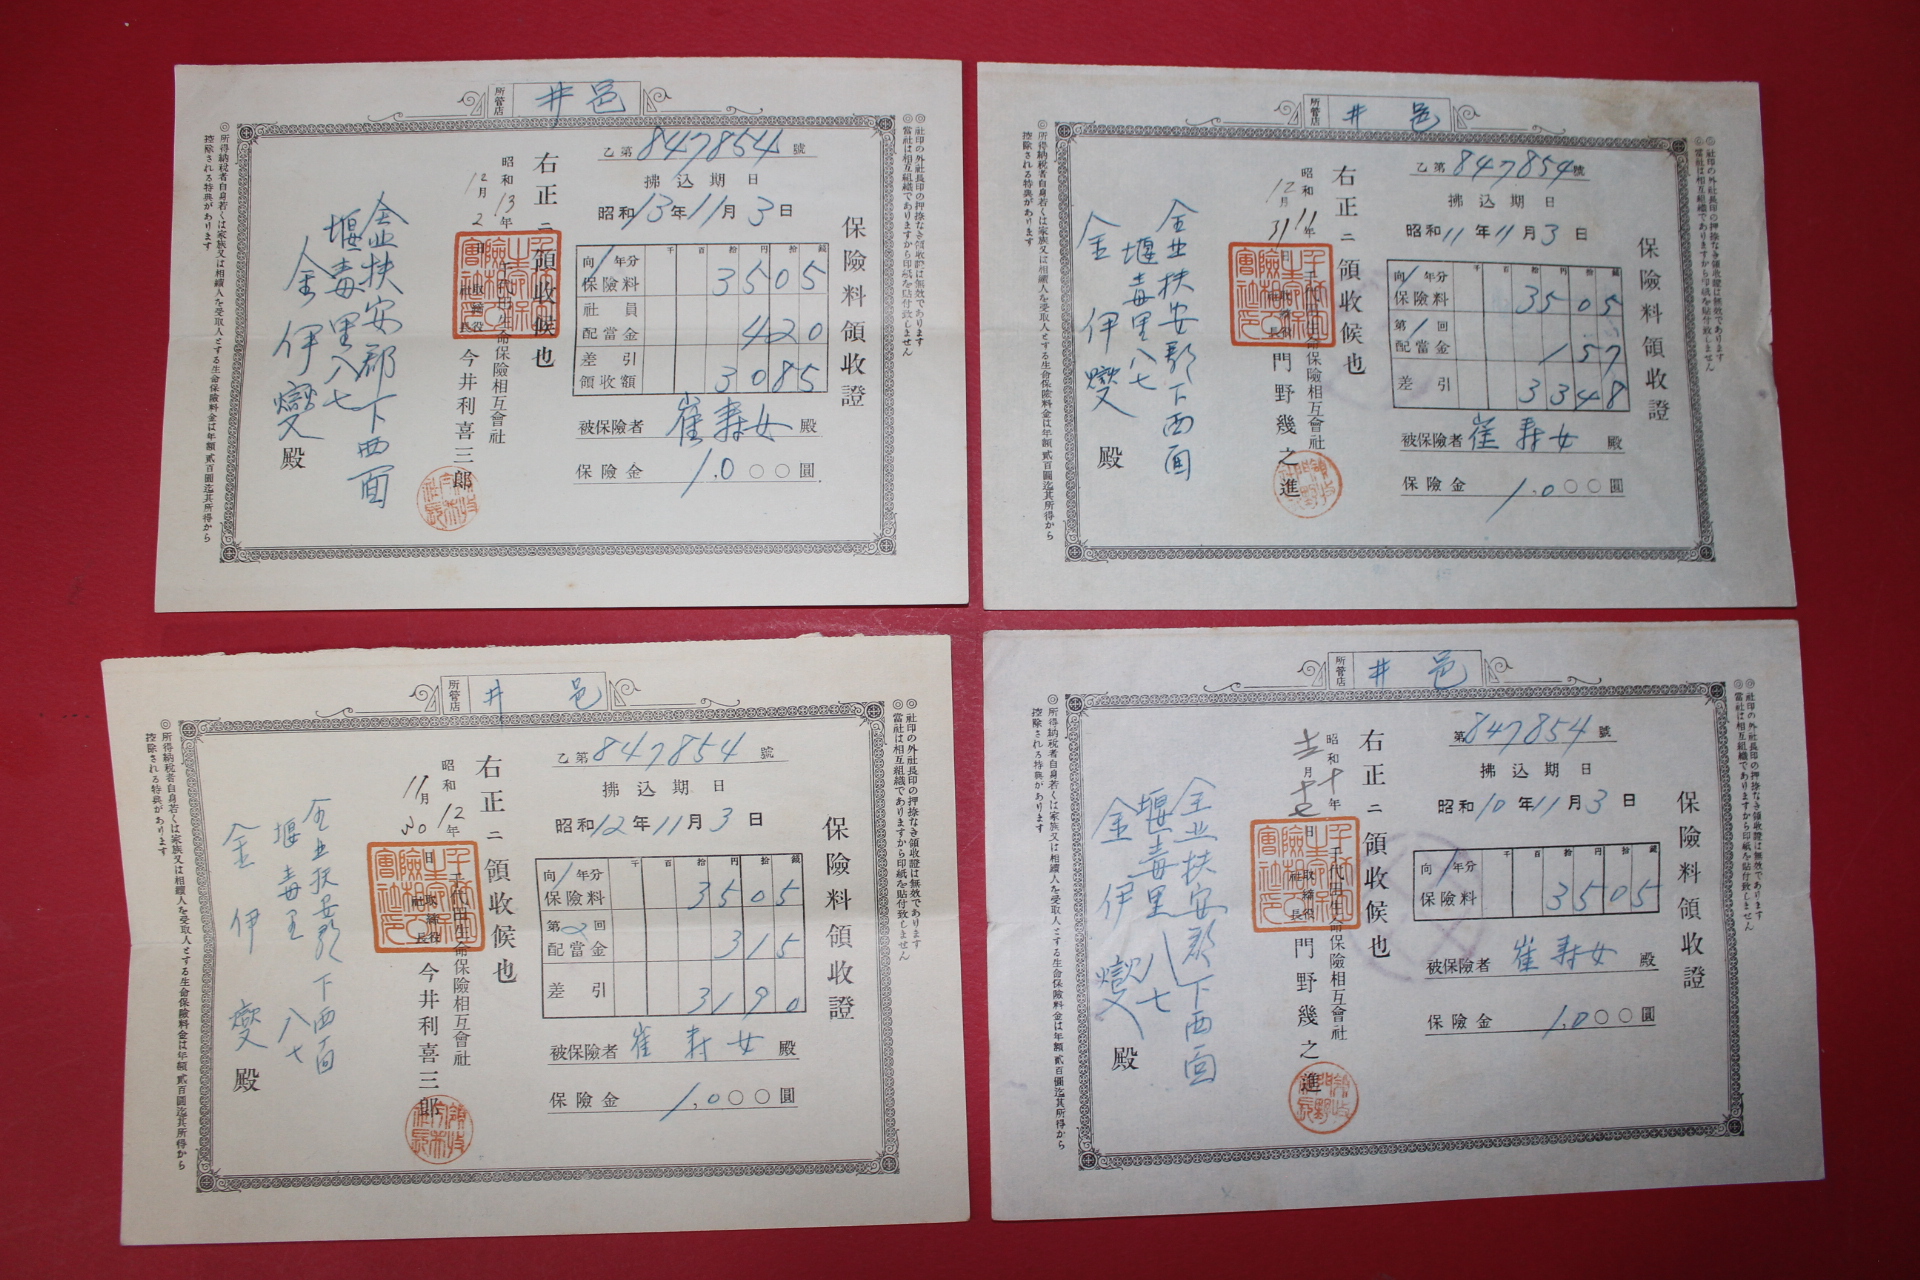 所管店 井邑
◎社印の外社長印の押捺なき領收證は無效であります
◎當社は相互組織でありますから印紙を貼付致しません
保險料領收證
乙第847854號
拂込期日
昭和13年11月3日
千 百 拾 円 拾 錢
向1年分保險料 3505
社員配當金 420
差引領收額 3085
被保險者 崔壽女 殿
保險金 1,000圓
右正ニ領收候也
昭和13年12月2日
千代田生命保險相互會社
取締役社長 今井利喜三郎
全北扶安郡下西面
堰毒里八七
金伊燮 殿
◎所得納稅者自身若くは家族又は相續人を受取人とする生命保險料金は年額貳百圓迄其所得から
控除される特典があります
所管店 井邑
◎社印の外社長印の押捺なき領收證は無效であります
◎當社は相互組織でありますから印紙を貼付致しません
保險料領收證
乙第847854號
拂込期日
昭和11年11月3日
千 百 拾 円 拾 錢
向1年分保險料 3505
第1回配當金 157
差引 3348
被保險者 崔壽女 殿
保險金 1,000圓
右正ニ領收候也
昭和11年12月31日
千代田生命保險相互會社
取締役社長 門野幾之進
全北扶安郡下西面
堰毒里八七
金伊燮 殿
◎所得納稅者自身若くは家族又は相續人を受取人とする生命保險料金は年額貳百圓迄其所得から
控除される特典があります
所管店 井邑
◎社印の外社長印の押捺なき領收證は無效であります
◎當社は相互組織でありますから印紙を貼付致しません
保險料領收證
乙第847854號
拂込期日
昭和12年11月3日
千 百 拾 円 拾 錢
向1年分保險料 3505
第2回配當金 315
差引 3190
被保險者 崔壽女 殿
保險金 1,000圓
右正ニ領收候也
昭和12年11月30日
千代田生命保險相互會社
取締役社長 今井利喜三郎
全北扶安郡下西面
堰毒里八七
金伊燮 殿
◎所得納稅者自身若くは家族又は相續人を受取人とする生命保險料金は年額貳百圓迄其所得から
控除される特典があります
所管店 井邑
◎社印の外社長印の押捺なき領收證は無效であります
◎當社は相互組織でありますから印紙を貼付致しません
保險料領收證
第847854號
拂込期日
昭和10年11月3日
千 百 拾 円 拾 錢
向1年分保險料 3505
被保險者 崔壽女 殿
保險金 1,000圓
右正ニ領收候也
千代田生命保險相互會社
取締役社長 門野幾之進
全北扶安郡下西面
堰毒里八七
金伊燮 殿
◎所得納稅者自身若くは家族又は相續人を受取人とする生命保險料金は年額貳百圓迄其所得から
控除される特典があります